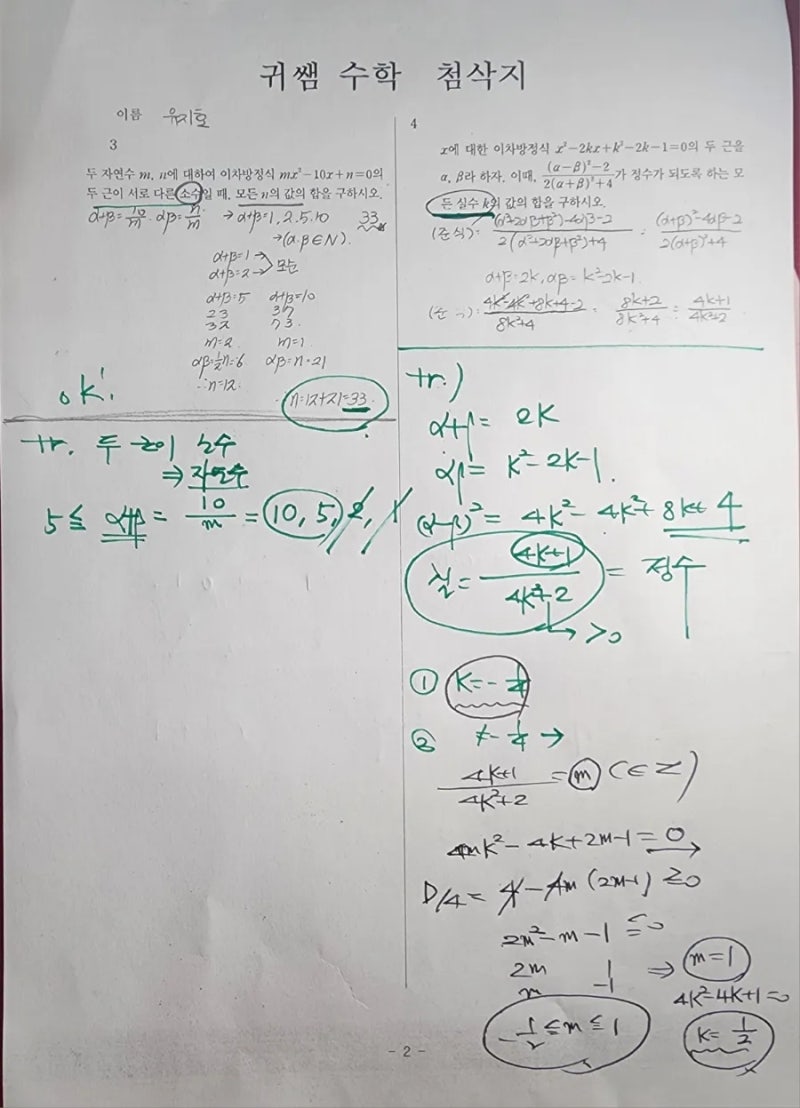 귀쌤 수학 첨삭지
이름 유지호
3
두 자연수 m, n에 대하여 이차방정식 mx²-10x+n=0의
두 근이 서로 다른 소수일 때, 모든 n의 값의 합을 구하시오.
α+β=10/m, αβ=n/m → α+β=1, 2, 5, 10 33
→(α,β∈N).
α+β=1
α+β=2 > 모순
α+β=5 α+β=10
2 3 3 7
3 2 7 3
m=2 m=1
αβ=½n=6 αβ=n=21
∴n=12
∴n=12+21=33
ok!
tr. 두 근이 소수
⇒ 자연수
5 ≦ α+β = 10/m = 10, 5, 2, 1
4
x에 대한 이차방정식 x²-2kx+k²-2k-1=0의 두 근을
α, β라 하자. 이때, (α-β)²-2 / 2(α+β)²+4 가 정수가 되도록 하는 모
든 실수 k의 값의 합을 구하시오.
(준식)= (α²+2αβ+β²)-4αβ-2 / 2(α²+2αβ+β²)+4 = (α+β)²-4αβ-2 / 2(α+β)²+4
α+β=2k, αβ=k²-2k-1
(준식)= 4k²-4k²+8k+4-2 / 8k²+4 = 8k+2 / 8k²+4 = 4k+1 / 4k²+2
tr.)
α+β= 2k
αβ= k²-2k-1.
(α-β)² = 4k²-4k²+8k+4
식= 4k+1 / 4k²+2 = 정수
→ >0
① k=-¼
② ≠-¼ →
4k+1 / 4k²+2 = m (∈Z)
4mk²-4k+2m-1=0
D/4= 4-4m(2m-1) ≧0
2m²-m-1 ≦0
2m 1
m -1 ⇒ m=1
4k²-4k+1=0
-½≦m≦1 k=½
- 2 -